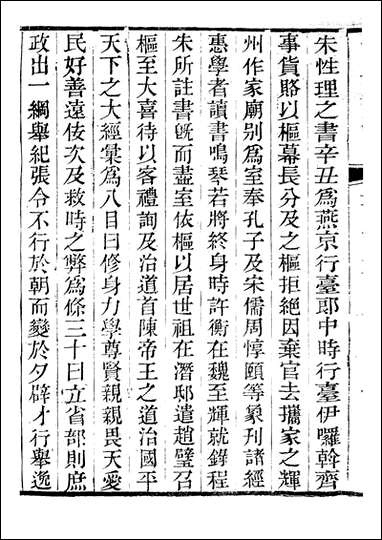 朱性理之書辛丑爲燕京行臺郎中時行臺伊囉斡齊
事貨賂以樞幕長分及之樞拒絕因棄官去攜家之輝
州作家廟別爲室奉孔子及宋儒周惇頤等象刊諸經
惠學者讀書鳴琴若將終身時許衡在魏至輝就錄程
朱所註書旣而盡室依樞以居世祖在潛邸遣趙璧召
樞至大喜待以客禮詢及治道首陳帝王之道治國平
天下之大經彙爲八目曰修身力學尊賢親親畏天愛
民好善遠佞次及救時之弊爲條三十曰立省部則庶
政出一綱舉紀張令不行於朝而變於夕辟才行舉逸